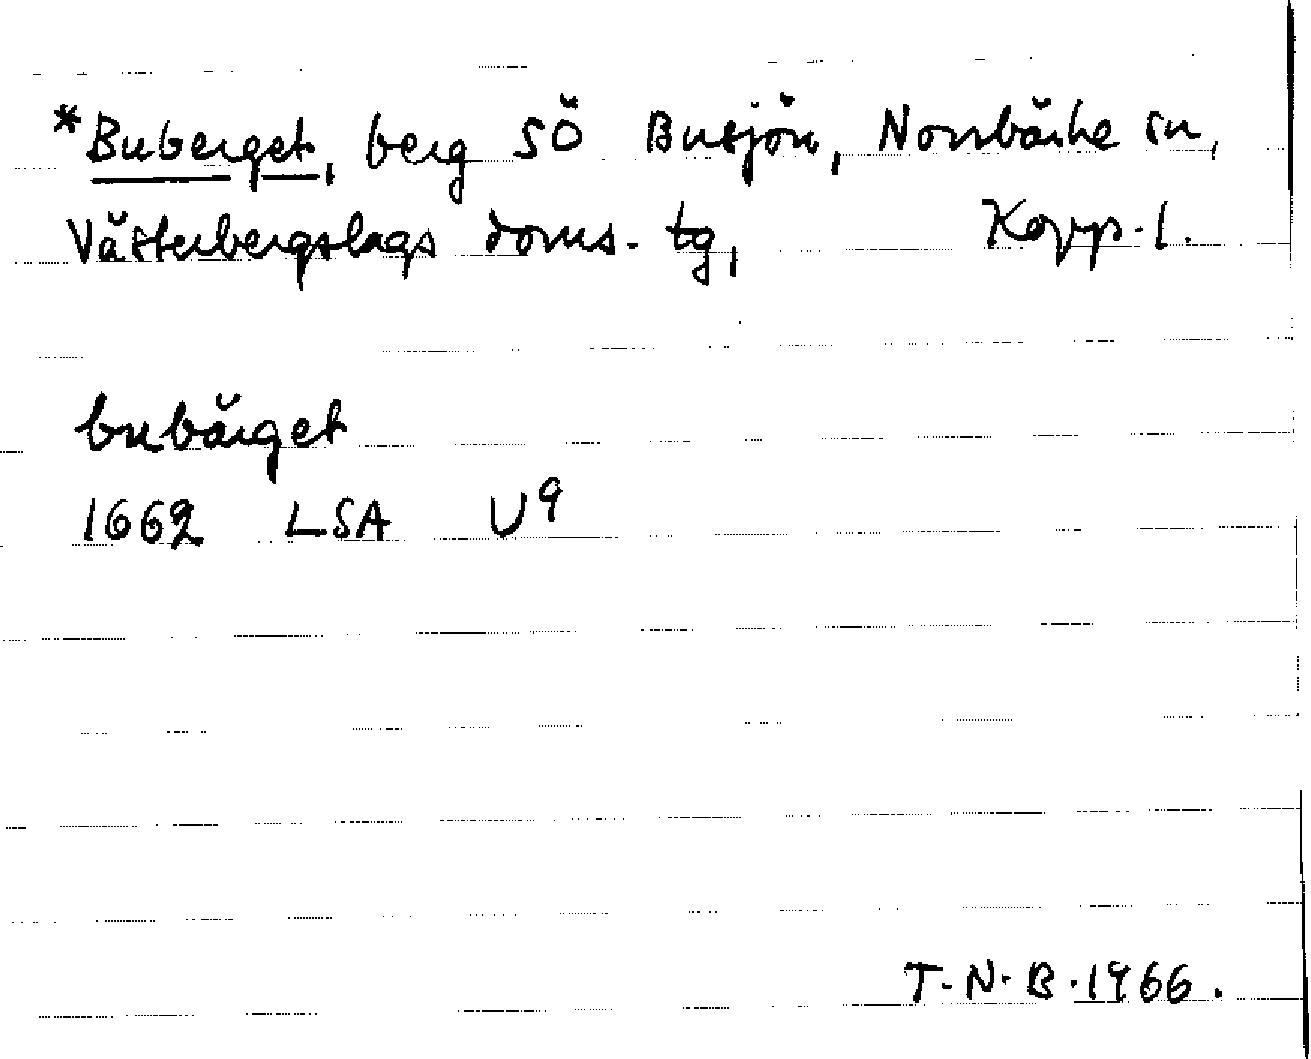 *Buberget, berg SÖ Busjön, Norrbärke sn,
Västerbergslags doms. tg, Kopp. l.
bubärget
1662 LSA U9
T. N. B. 1966.